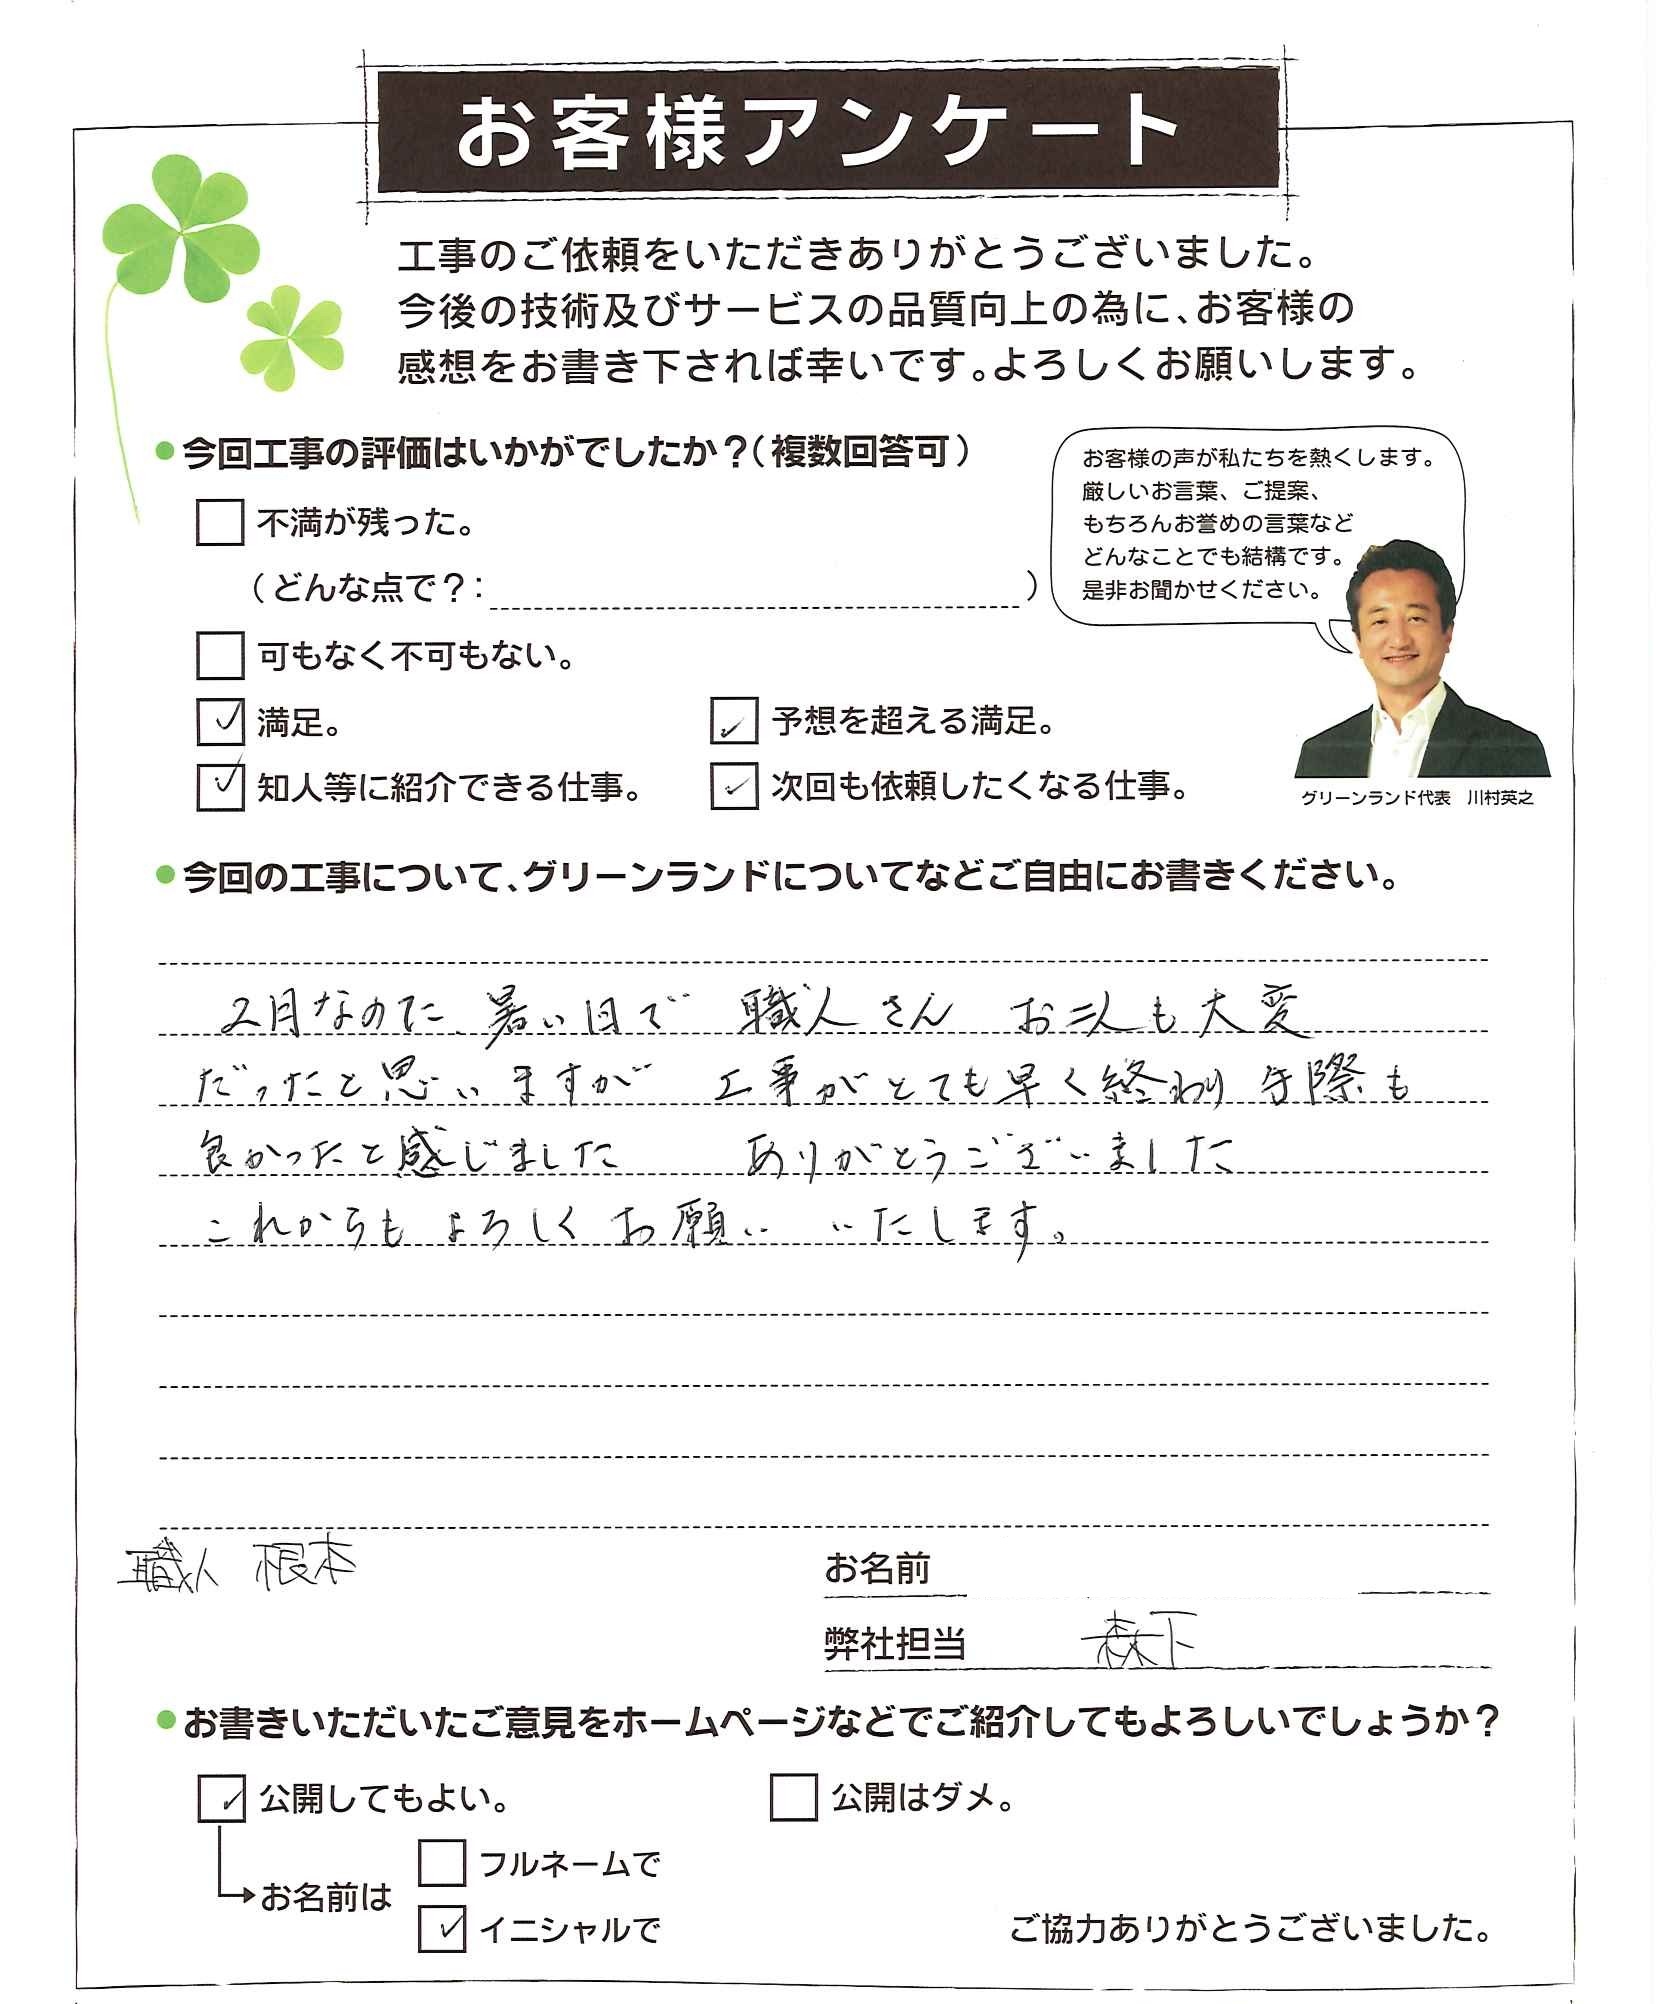 お客様アンケート
工事のご依頼をいただきありがとうございました。
今後の技術及びサービスの品質向上の為に、お客様の
感想をお書き下されば幸いです。よろしくお願いします。
●今回工事の評価はいかがでしたか?(複数回答可)
不満が残った。
(どんな点で?: )
可もなく不可もない。
満足。
予想を超える満足。
知人等に紹介できる仕事。
次回も依頼したくなる仕事。
お客様の声が私たちを熱くします。
厳しいお言葉、ご提案、
もちろんお誉めの言葉など
どんなことでも結構です。
是非お聞かせください。
グリーンランド代表 川村英之
●今回の工事について、グリーンランドについてなどご自由にお書きください。
2月なのに、暑い日で 職人さん お二人も大変
だったと思いますが 工事がとても早く終わり 手際も
良かったと感じました ありがとうございました
これからもよろしくお願い いたします。
職人 根本
お名前
弊社担当 森下
●お書きいただいたご意見をホームページなどでご紹介してもよろしいでしょうか?
公開してもよい。
公開はダメ。
お名前は
フルネームで
イニシャルで
ご協力ありがとうございました。